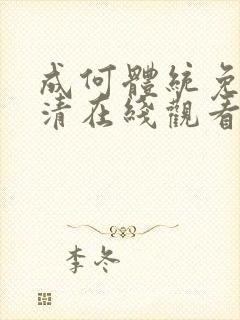 成何體統免
清在綫觀看
李冬